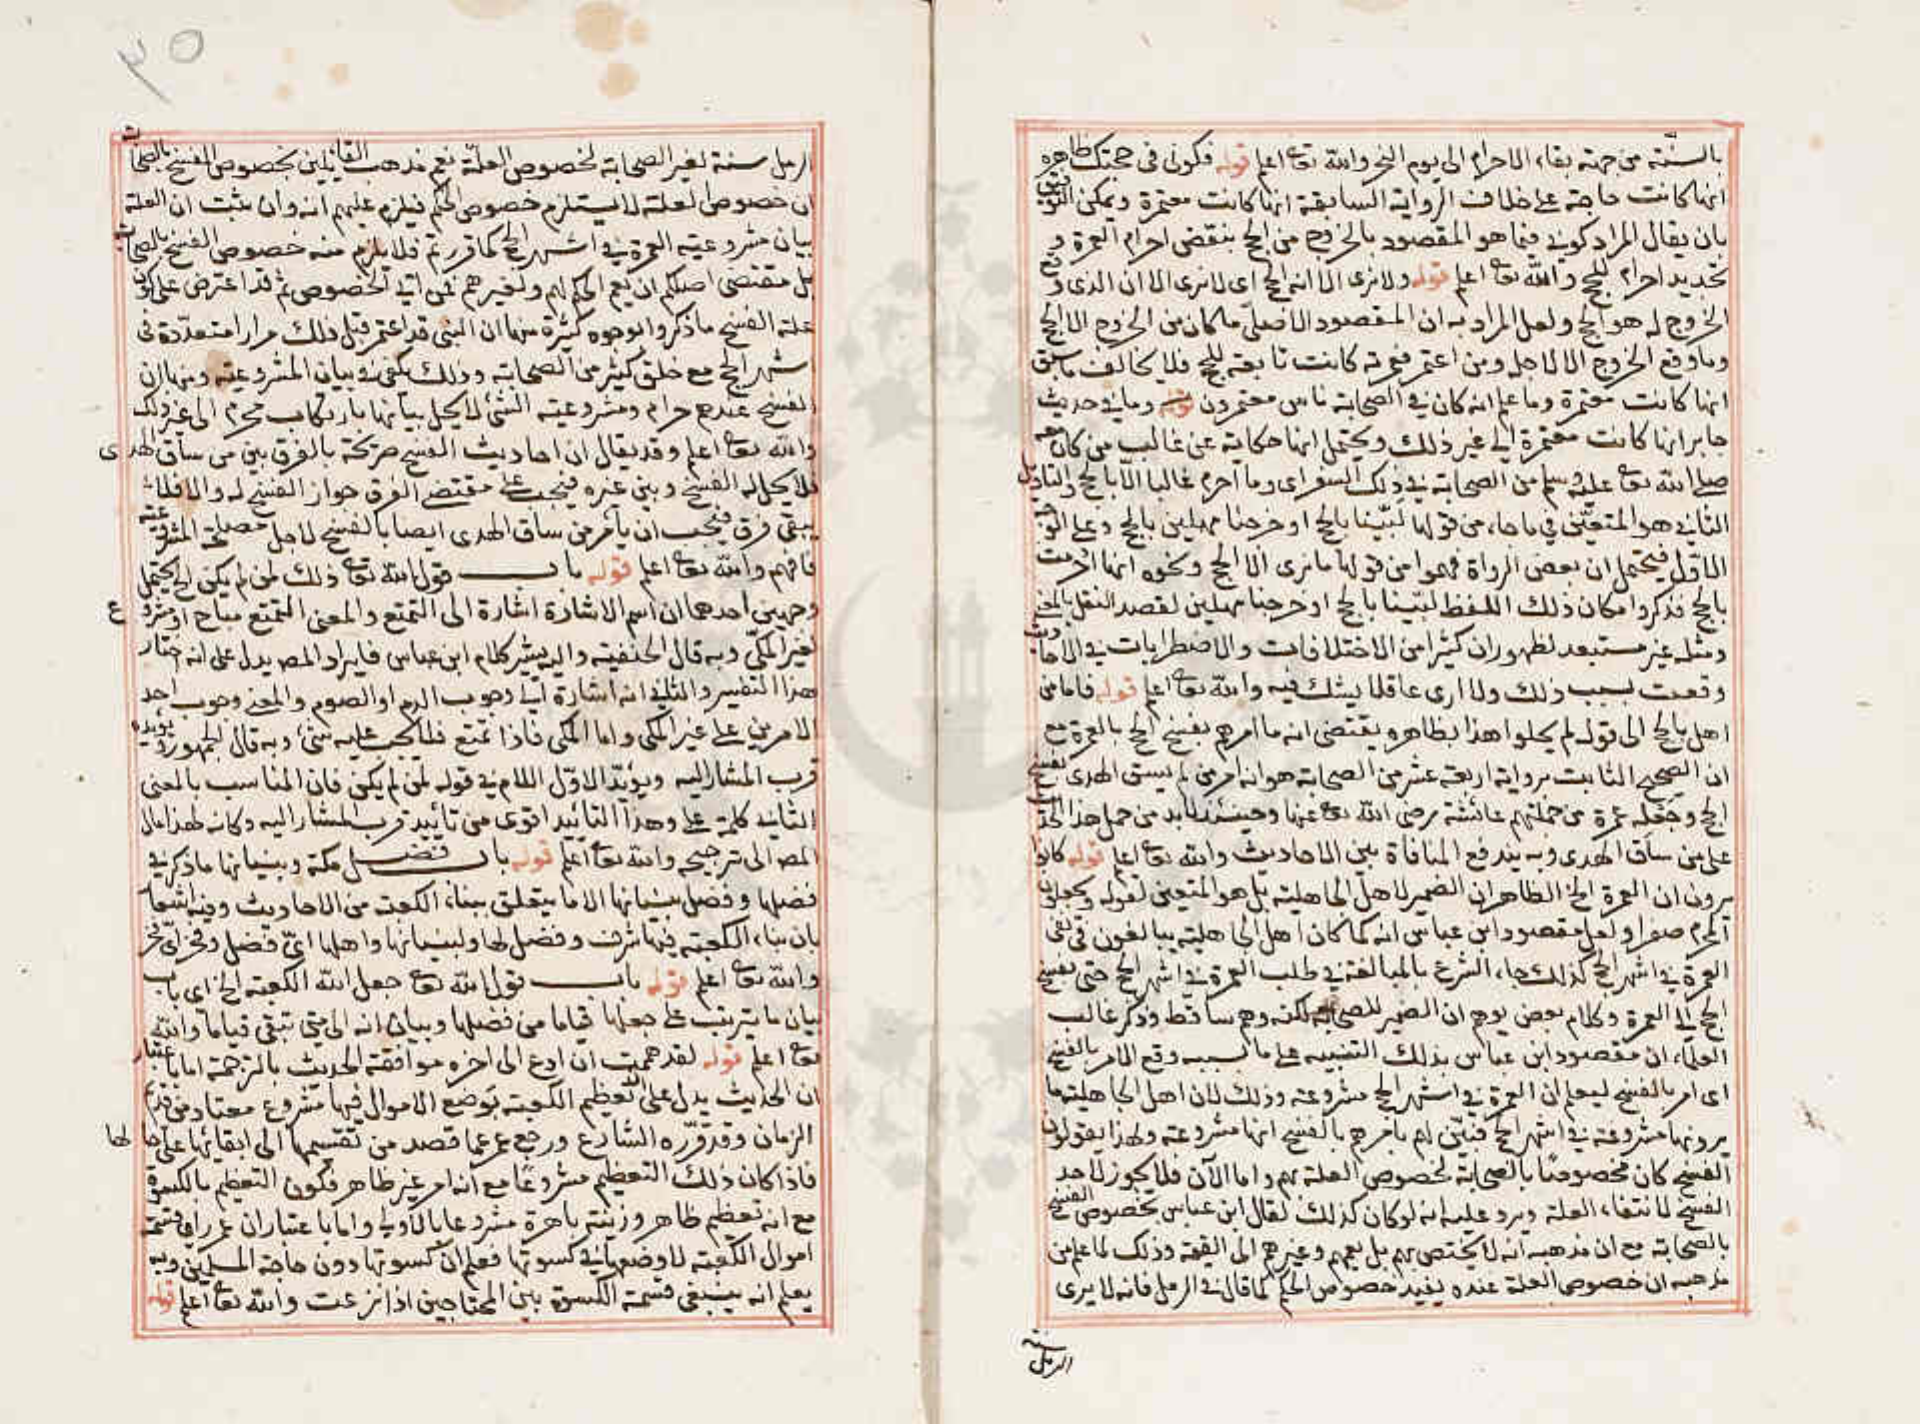 بالسنة من جهة بقاء الاحرام الى يوم النحر والله تعالى اعلم قوله فكوني في حجتك ظاهره
انها كانت حاجة على خلاف الرواية السابقة انها كانت معتمرة ويمكن التوفيق
بان يقال المراد كوني فيما هو المقصود بالخروج من الحج بنقض احرام العمرة و
تجديد احرام للحج والله تعالى اعلم قوله ولا نرى الا انه الحج اي لا نرى الا ان الذي وقع
الخروج له هو الحج ولعل المراد به ان المقصود الاصلي ما كان من الخروج الا الحج
وما وقع الخروج الا لاجله ومن اعتمر فعمرته كانت تابعة للحج فلا يخالف ما سبق
انها كانت معتمرة وما علم انه كان في الصحابة ناس معتمرون قوله وما في حديث
جابر انها كانت معتمرة الى غير ذلك ويحتمل انها حكاية عن غالب من كان معه
صلى الله تعالى عليه وسلم من الصحابة في ذلك السفر اي وما احرم غالبا الا بالحج والتاويل
الثاني هو المتعين في ما جاء من قولها لبينا بالحج او خرجنا مهلين بالحج وعلى الوجه
الاول فيحتمل ان بعض الرواة فهموا من قولها ما نرى الا الحج ونحوه انها احرمت
بالحج فذكروا مكان ذلك اللفظ لبينا بالحج او خرجنا مهلين لقصد النقل بالمعنى
ومثله غير مستبعد لظهور ان كثيرا من الاختلافات والاضطرابات في الاحاديث
وقعت بسبب ذلك ولا ارى عاقلا يشك فيه والله تعالى اعلم قوله فاما من
اهل بالحج الى قوله لم يحلوا هذا بظاهره يقتضي انه ما امرهم بفسخ الحج بالعمرة مع
ان الصحيح الثابت برواية اربعة عشر من الصحابة هو انه امر من لم يسق الهدى بفسخ
الحج وجعله عمرة من جملتهم عائشة رضى الله تعالى عنها وحينئذ لابد من حمل هذا الحديث
على من ساق الهدى وبه يندفع المنافاة بين الاحاديث والله تعالى اعلم قوله كانوا
يرون ان العمرة الخ الظاهر ان الضمير لاهل الجاهلية بل هو المتعين لقوله ويجعلون
المحرم صفرا ولعل مقصود ابن عباس انه كما كان اهل الجاهلية يبالغون في نفي
العمرة في اشهر الحج كذلك جاء الشرع بالمبالغة في طلب العمرة في اشهر الحج حتى بفسخ
الحج الى العمرة وكلام بعض يوهم ان الضمير للصحابة لكنه وهم ساقط وذكر غالب
العلماء ان مقصود ابن عباس بذلك التنبيه على ما لسببه وقع الامر بالفسخ
اى امر بالفسخ ليعلم ان العمرة في اشهر الحج مشروعة وذلك لان اهل الجاهلية ما
يرونها مشروعة في اشهر الحج فبين لهم بامرهم بالفسخ انها مشروعة ولهذا يقولون
الفسخ كان مخصوصا بالصحابة لخصوص العلة بهم واما الآن فلا يجوز لاحد
الفسخ لانتفاء العلة ويرد عليه انه لو كان كذلك لقال ابن عباس بخصوص الفسخ
بالصحابة مع ان مذهبه انه لا يختص بهم بل يعمهم وغيرهم الى القيمة وذلك لما علم من
مذهبه ان خصوص العلة عنده يفيد خصوص الحكم كما قال في الرمل فانه لا يرى
الرمل سنة
٣٥
الرمل سنة لغير الصحابة لخصوص العلة نعم مذهب القائلين بخصوص الفسخ بالصحابة
ان خصوص العلة لا يستلزم خصوص الحكم فيلزم عليهم انه وان ثبت ان العلة
بيان مشروعية العمرة في اشهر الحج كما قررتم فلا يلزم منه خصوص الفسخ بالصحابة
بل مقتضى اصلكم ان يعم الحكم لهم ولغيرهم فمن اين الخصوص ثم قد اعترض على كون
علة الفسخ ما ذكروا بوجوه كثيرة منها ان النبي قد اعتمر قبل ذلك مرارا متعددة في
اشهر الحج مع خلق كثير من الصحابة وذلك يكفي في بيان المشروعية ومنها ان
الفسخ عندهم حرام ومشروعية الشئ لا يحل بيانها بارتكاب محرم الى غير ذلك
والله تعالى اعلم وقد يقال ان احاديث الفسخ صريحة بالفرق بين من ساق الهدى
فلا يحل له الفسخ وبين غيره فيجب على مقتضى الفرق جواز الفسخ له والا فلا
يبقى فرق فيجب ان يامر من ساق الهدى ايضا بالفسخ لاجل مصلحة المشروعية
فافهم والله تعالى اعلم قوله باب قول الله تعالى ذلك لمن لم يكن الخ يحتمل
وجهين احدهما ان اسم الاشارة اشارة الى التمتع والمعنى التمتع مباح او مشروع
لغير المكي وبه قال الحنفية واليه يشير كلام ابن عباس فايراد المص يدل على انه اختار
هذا التفسير والثاني انه اشارة الى وجوب الدم او الصوم والمعنى وجوب احد
الامرين على غير المكي واما المكي فاذا تمتع فلا يجب عليه شئ وبه قال الجمهور ويؤيده
قرب المشار اليه ويؤيد الاول اللام في قوله لمن لم يكن فان المناسب بالمعنى
الثاني كلمة على وهذا التأييد اقوى من تأييد قرب المشار اليه وكانه لهذا مال
المص الى ترجيحه والله تعالى اعلم قوله باب فضل مكة وبنيانها ما ذكر في
فضلها وفضل بنيانها الا ما يتعلق ببناء الكعبة من الاحاديث وفيه اشعار
بان بناء الكعبة فيها شرف وفضل لها ولبنيانها واهلها اي فضل وفخر اي فخر
والله تعالى اعلم قوله باب قول الله تعالى جعل الله الكعبة الخ اى باب
بيان ما يترتب على جعلها قياما من فضلها وبيان انه الى متى تبقى قياما والله
تعالى اعلم قوله لقد هممت ان ادع الى اخره موافقة الحديث بالترجمة اما باعتبار
ان الحديث يدل على ان تعظيم الكعبة بوضع الاموال فيها مشروع معتاد من قديم
الزمان وقد قرره الشارع ورجع عمر عما قصد من تقسيمها الى ابقائها على حالها
فاذا كان ذلك التعظيم مشروعا مع انه امر غير ظاهر فكون التعظيم بالكسوة
مع انه تعظيم ظاهر وزينة باهرة مشروعا بالاولى واما باعتبار ان عمر راى قسمة
اموال الكعبة لا وضعها في كسوتها فعلم ان كسوتها دون حاجة المسلمين وبه
يعلم انه ينبغي قسمة الكسوة بين المحتاجين اذا نزعت والله تعالى اعلم قوله